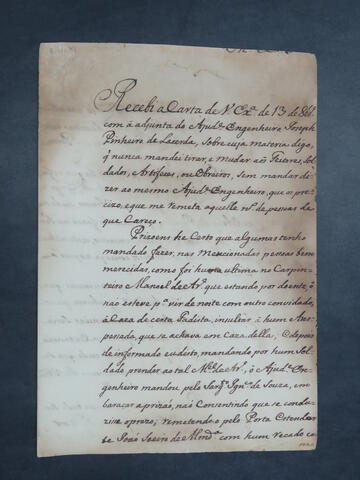 Recebi a Carta de V. Exª. de 13 de
com â adjunta do Ajud.ᵉ Engenheiro Joseph
Pinheiro de Lacerda, Sobre cuja materia digo,
q̃ nunca mandei tirar, e mudar aos Feitores, Sol-
dados, Artifices, ou Obreiros, Sem mandar di-
zer ao mesmo Ajud.ᵉ Engenheiro, que os pre-
cizo, e que me remeta aquelle nᵒ. de pessoas de
que Careço.
Prizoens he Certo que algumas tenho
mandado fazer, nas mencionadas pessoas bem
merecidas, como foi hua ultima no Carpin-
teiro Manoel de Ar.ᵒ que estando por doente, e
não esteve pª vir de noite com outro convidado,
â Caza de certa Padista, insultar â hum Ans-
pessada, que se achava em Caza della, e depois
de informado eu disto, mandando por hum Sol-
dado prender ao tal M.ᵉˡ de Ar.ᵒ, o Ajud.ᵉ En-
genheiro mandou pelo Sarg.ᵗᵒ Ign.ᶜⁱᵒ de Souza, em-
baraçar a prizaõ, não Consentindo que se condu-
zisse o prezo, remetendo-o pelo Porta Estendar-
te Joaõ de com hum recado